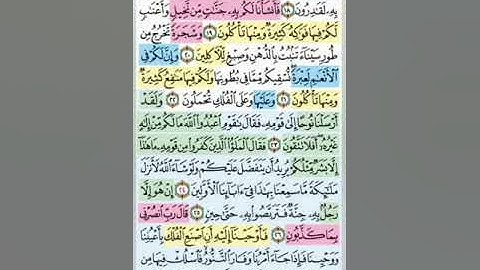 بِهِۦ لَقَٰدِرُونَ ١٨ فَأَنشَأْنَا لَكُم بِهِۦ جَنَّٰتٍ مِّن نَّخِيلٍ وَأَعْنَٰبٍ
لَّكُمْ فِيهَا فَوَٰكِهُ كَثِيرَةٌ وَمِنْهَا تَأْكُلُونَ ١٩ وَشَجَرَةً تَخْرُجُ مِن
طُورِ سَيْنَآءَ تَنۢبُتُ بِٱلدُّهْنِ وَصِبْغٍ لِّلْءَاكِلِينَ ٢٠ وَإِنَّ لَكُمْ فِى
ٱلْأَنْعَٰمِ لَعِبْرَةً نُّسْقِيكُم مِّمَّا فِى بُطُونِهَا وَلَكُمْ فِيهَا مَنَٰفِعُ كَثِيرَةٌ
وَمِنْهَا تَأْكُلُونَ ٢١ وَعَلَيْهَا وَعَلَى ٱلْفُلْكِ تُحْمَلُونَ ٢٢ وَلَقَدْ
أَرْسَلْنَا نُوحًا إِلَىٰ قَوْمِهِۦ فَقَالَ يَٰقَوْمِ ٱعْبُدُوا۟ ٱللَّهَ مَا لَكُم مِّنْ إِلَٰهٍ
غَيْرُهُۥٓ أَفَلَا تَتَّقُونَ ٢٣ فَقَالَ ٱلْمَلَؤُا۟ ٱلَّذِينَ كَفَرُوا۟ مِن قَوْمِهِۦ مَا هَٰذَآ
إِلَّا بَشَرٌ مِّثْلُكُمْ يُرِيدُ أَن يَتَفَضَّلَ عَلَيْكُمْ وَلَوْ شَآءَ ٱللَّهُ لَأَنزَلَ
مَلَٰٓئِكَةً مَّا سَمِعْنَا بِهَٰذَا فِىٓ ءَابَآئِنَا ٱلْأَوَّلِينَ ٢٤ إِنْ هُوَ إِلَّا
رَجُلٌۢ بِهِۦ جِنَّةٌ فَتَرَبَّصُوا۟ بِهِۦ حَتَّىٰ حِينٍ ٢٥ قَالَ رَبِّ ٱنصُرْنِى
بِمَا كَذَّبُونِ ٢٦ فَأَوْحَيْنَآ إِلَيْهِ أَنِ ٱصْنَعِ ٱلْفُلْكَ بِأَعْيُنِنَا
وَوَحْيِنَا فَإِذَا جَآءَ أَمْرُنَا وَفَارَ ٱلتَّنُّورُ فَٱسْلُكْ فِيهَا مِن